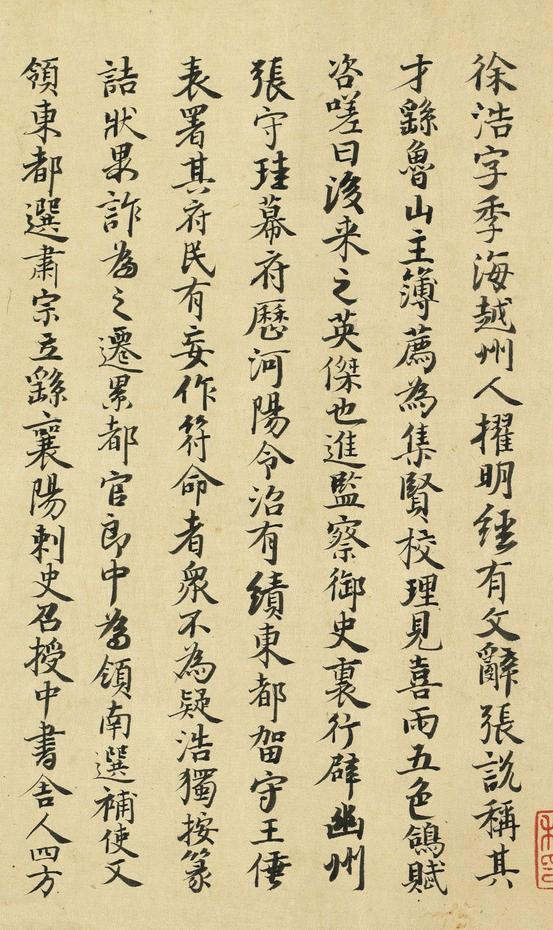 徐浩字季海越州人擢明經有文辭張說稱其
才繇魯山主簿薦為集賢校理見喜雨五色鴿賦
咨嗟曰後来之英傑也進監察御史裏行辟幽州
張守珪幕府歷河陽令治有績東都留守王倕
表署其府民有妄作符命者衆不為疑浩獨按篆
詰狀果詐為之遷累都官郎中為領南選補使又
領東都選肅宗立繇襄陽刺史召授中書舍人四方